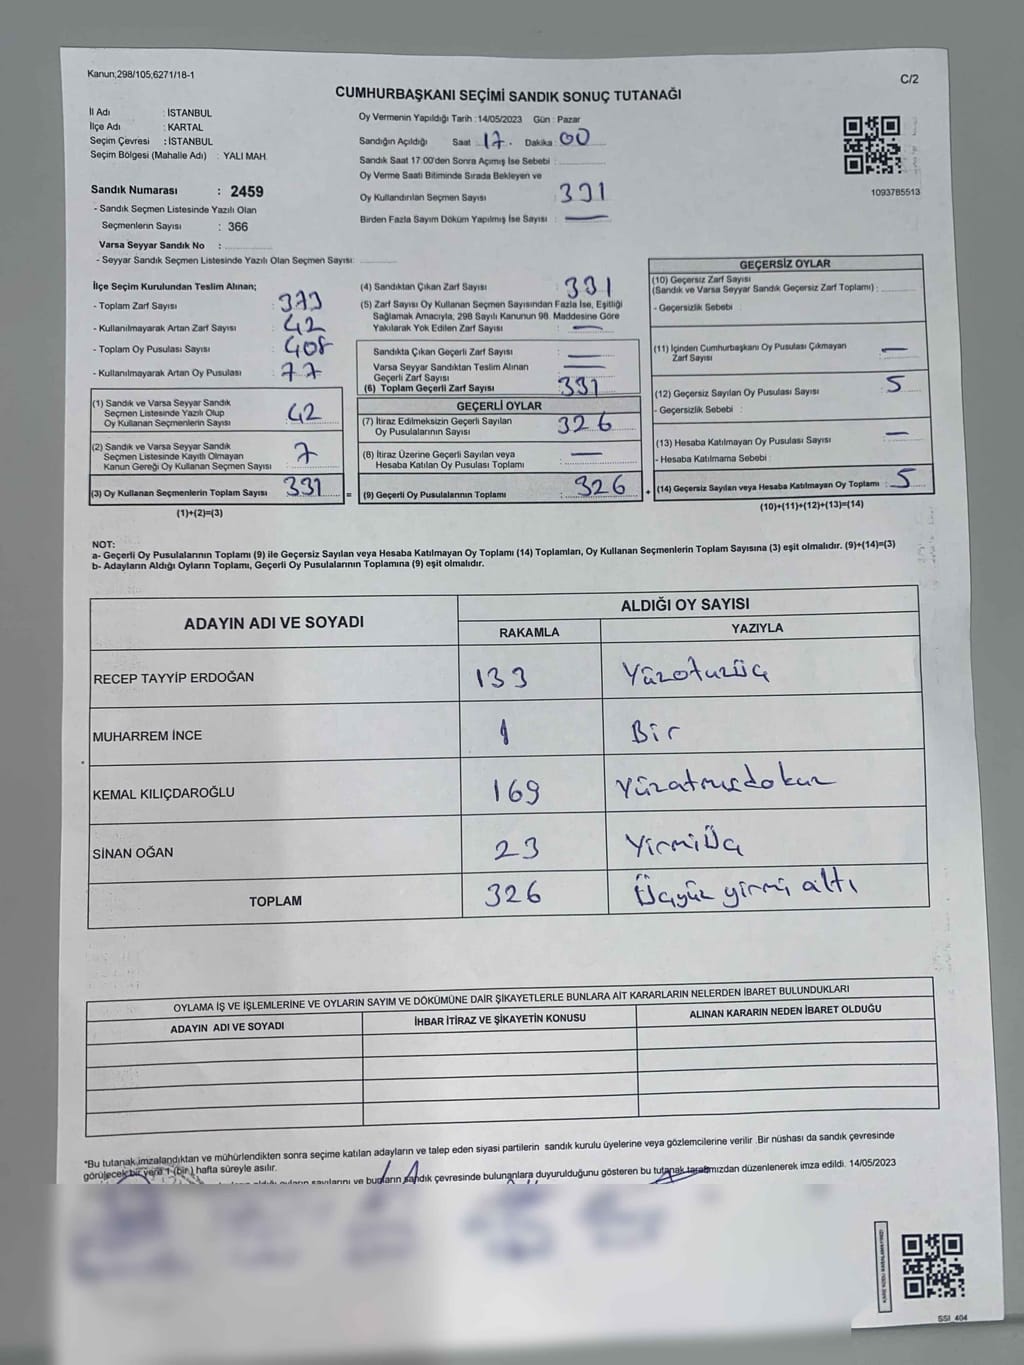 Kanun;298/105,6271/18-1
C/2
CUMHURBAŞKANI SEÇİMİ SANDIK SONUÇ TUTANAĞI
İl Adı : İSTANBUL
İlçe Adı : KARTAL
Seçim Çevresi : İSTANBUL
Seçim Bölgesi (Mahalle Adı) : YALI MAH.
Sandık Numarası : 2459
- Sandık Seçmen Listesinde Yazılı Olan
Seçmenlerin Sayısı : 366
Varsa Seyyar Sandık No :
- Seyyar Sandık Seçmen Listesinde Yazılı Olan Seçmen Sayısı:
Oy Vermenin Yapıldığı Tarih :14/05/2023 Gün : Pazar
Sandığın Açıldığı Saat 17. Dakika: 00
Sandık Saat 17:00'den Sonra Açımış İse Sebebi :
Oy Verme Saati Bitiminde Sırada Bekleyen ve
Oy Kullandırılan Seçmen Sayısı : 331
Birden Fazla Sayım Döküm Yapılmış İse Sayısı : —
1093785513
İlçe Seçim Kurulundan Teslim Alınan;
- Toplam Zarf Sayısı : 373
- Kullanılmayarak Artan Zarf Sayısı : 42
- Toplam Oy Pusulası Sayısı : 408
- Kullanılmayarak Artan Oy Pusulası : 77
(1) Sandık ve Varsa Seyyar Sandık
Seçmen Listesinde Yazılı Olup
Oy Kullanan Seçmenlerin Sayısı : 42
(2) Sandık ve Varsa Seyyar Sandık
Seçmen Listesinde Kayıtlı Olmayan
Kanun Gereği Oy Kullanan Seçmen Sayısı : 7
(3) Oy Kullanan Seçmenlerin Toplam Sayısı : 331
(1)+(2)=(3)
=
(4) Sandıktan Çıkan Zarf Sayısı : 331
(5) Zarf Sayısı Oy Kullanan Seçmen Sayısından Fazla İse, Eşitliği
Sağlamak Amacıyla, 298 Sayılı Kanunun 98. Maddesine Göre
Yakılarak Yok Edilen Zarf Sayısı : —
Sandıkta Çıkan Geçerli Zarf Sayısı : —
Varsa Seyyar Sandıktan Teslim Alınan
Geçerli Zarf Sayısı : —
(6) Toplam Geçerli Zarf Sayısı : 331
GEÇERLİ OYLAR
(7) İtiraz Edilmeksizin Geçerli Sayılan
Oy Pusulalarının Sayısı : 326
(8) İtiraz Üzerine Geçerli Sayılan veya
Hesaba Katılan Oy Pusulası Toplamı : —
(9) Geçerli Oy Pusulalarının Toplamı : 326
+
GEÇERSİZ OYLAR
(10) Geçersiz Zarf Sayısı
(Sandık ve Varsa Seyyar Sandık Geçersiz Zarf Toplamı) :
- Geçersizlik Sebebi :
(11) İçinden Cumhurbaşkanı Oy Pusulası Çıkmayan
Zarf Sayısı : —
(12) Geçersiz Sayılan Oy Pusulası Sayısı : 5
- Geçersizlik Sebebi :
(13) Hesaba Katılmayan Oy Pusulası Sayısı : —
- Hesaba Katılmama Sebebi :
(14) Geçersiz Sayılan veya Hesaba Katılmayan Oy Toplamı : 5
(10)+(11)+(12)+(13)=(14)
NOT:
a- Geçerli Oy Pusulalarının Toplamı (9) ile Geçersiz Sayılan veya Hesaba Katılmayan Oy Toplamı (14) Toplamları, Oy Kullanan Seçmenlerin Toplam Sayısına (3) eşit olmalıdır. (9)+(14)=(3)
b- Adayların Aldığı Oyların Toplamı, Geçerli Oy Pusulalarının Toplamına (9) eşit olmalıdır.
ADAYIN ADI VE SOYADI
ALDIĞI OY SAYISI
RAKAMLA YAZIYLA
RECEP TAYYİP ERDOĞAN 133 Yüzotuzüç
MUHARREM İNCE 1 Bir
KEMAL KILIÇDAROĞLU 169 Yüzatmışdokuz
SİNAN OĞAN 23 YirmiÜç
TOPLAM 326 Üçyüz yirmi altı
OYLAMA İŞ VE İŞLEMLERİNE VE OYLARIN SAYIM VE DÖKÜMÜNE DAİR ŞİKAYETLERLE BUNLARA AİT KARARLARIN NELERDEN İBARET BULUNDUKLARI
ADAYIN ADI VE SOYADI İHBAR İTİRAZ VE ŞİKAYETİN KONUSU ALINAN KARARIN NEDEN İBARET OLDUĞU
*Bu tutanak,imzalandıktan ve mühürlendikten sonra seçime katılan adayların ve talep eden siyasi partilerin sandık kurulu üyelerine veya gözlemcilerine verilir .Bir nüshası da sandık çevresinde
görülecek bir yere 1 (bir ) hafta süreyle asılır.
ve bunların sandık çevresinde bulunanlara duyurulduğunu gösteren bu tutanak tarafımızdan düzenlenerek imza edildi. 14/05/2023
SSI_404